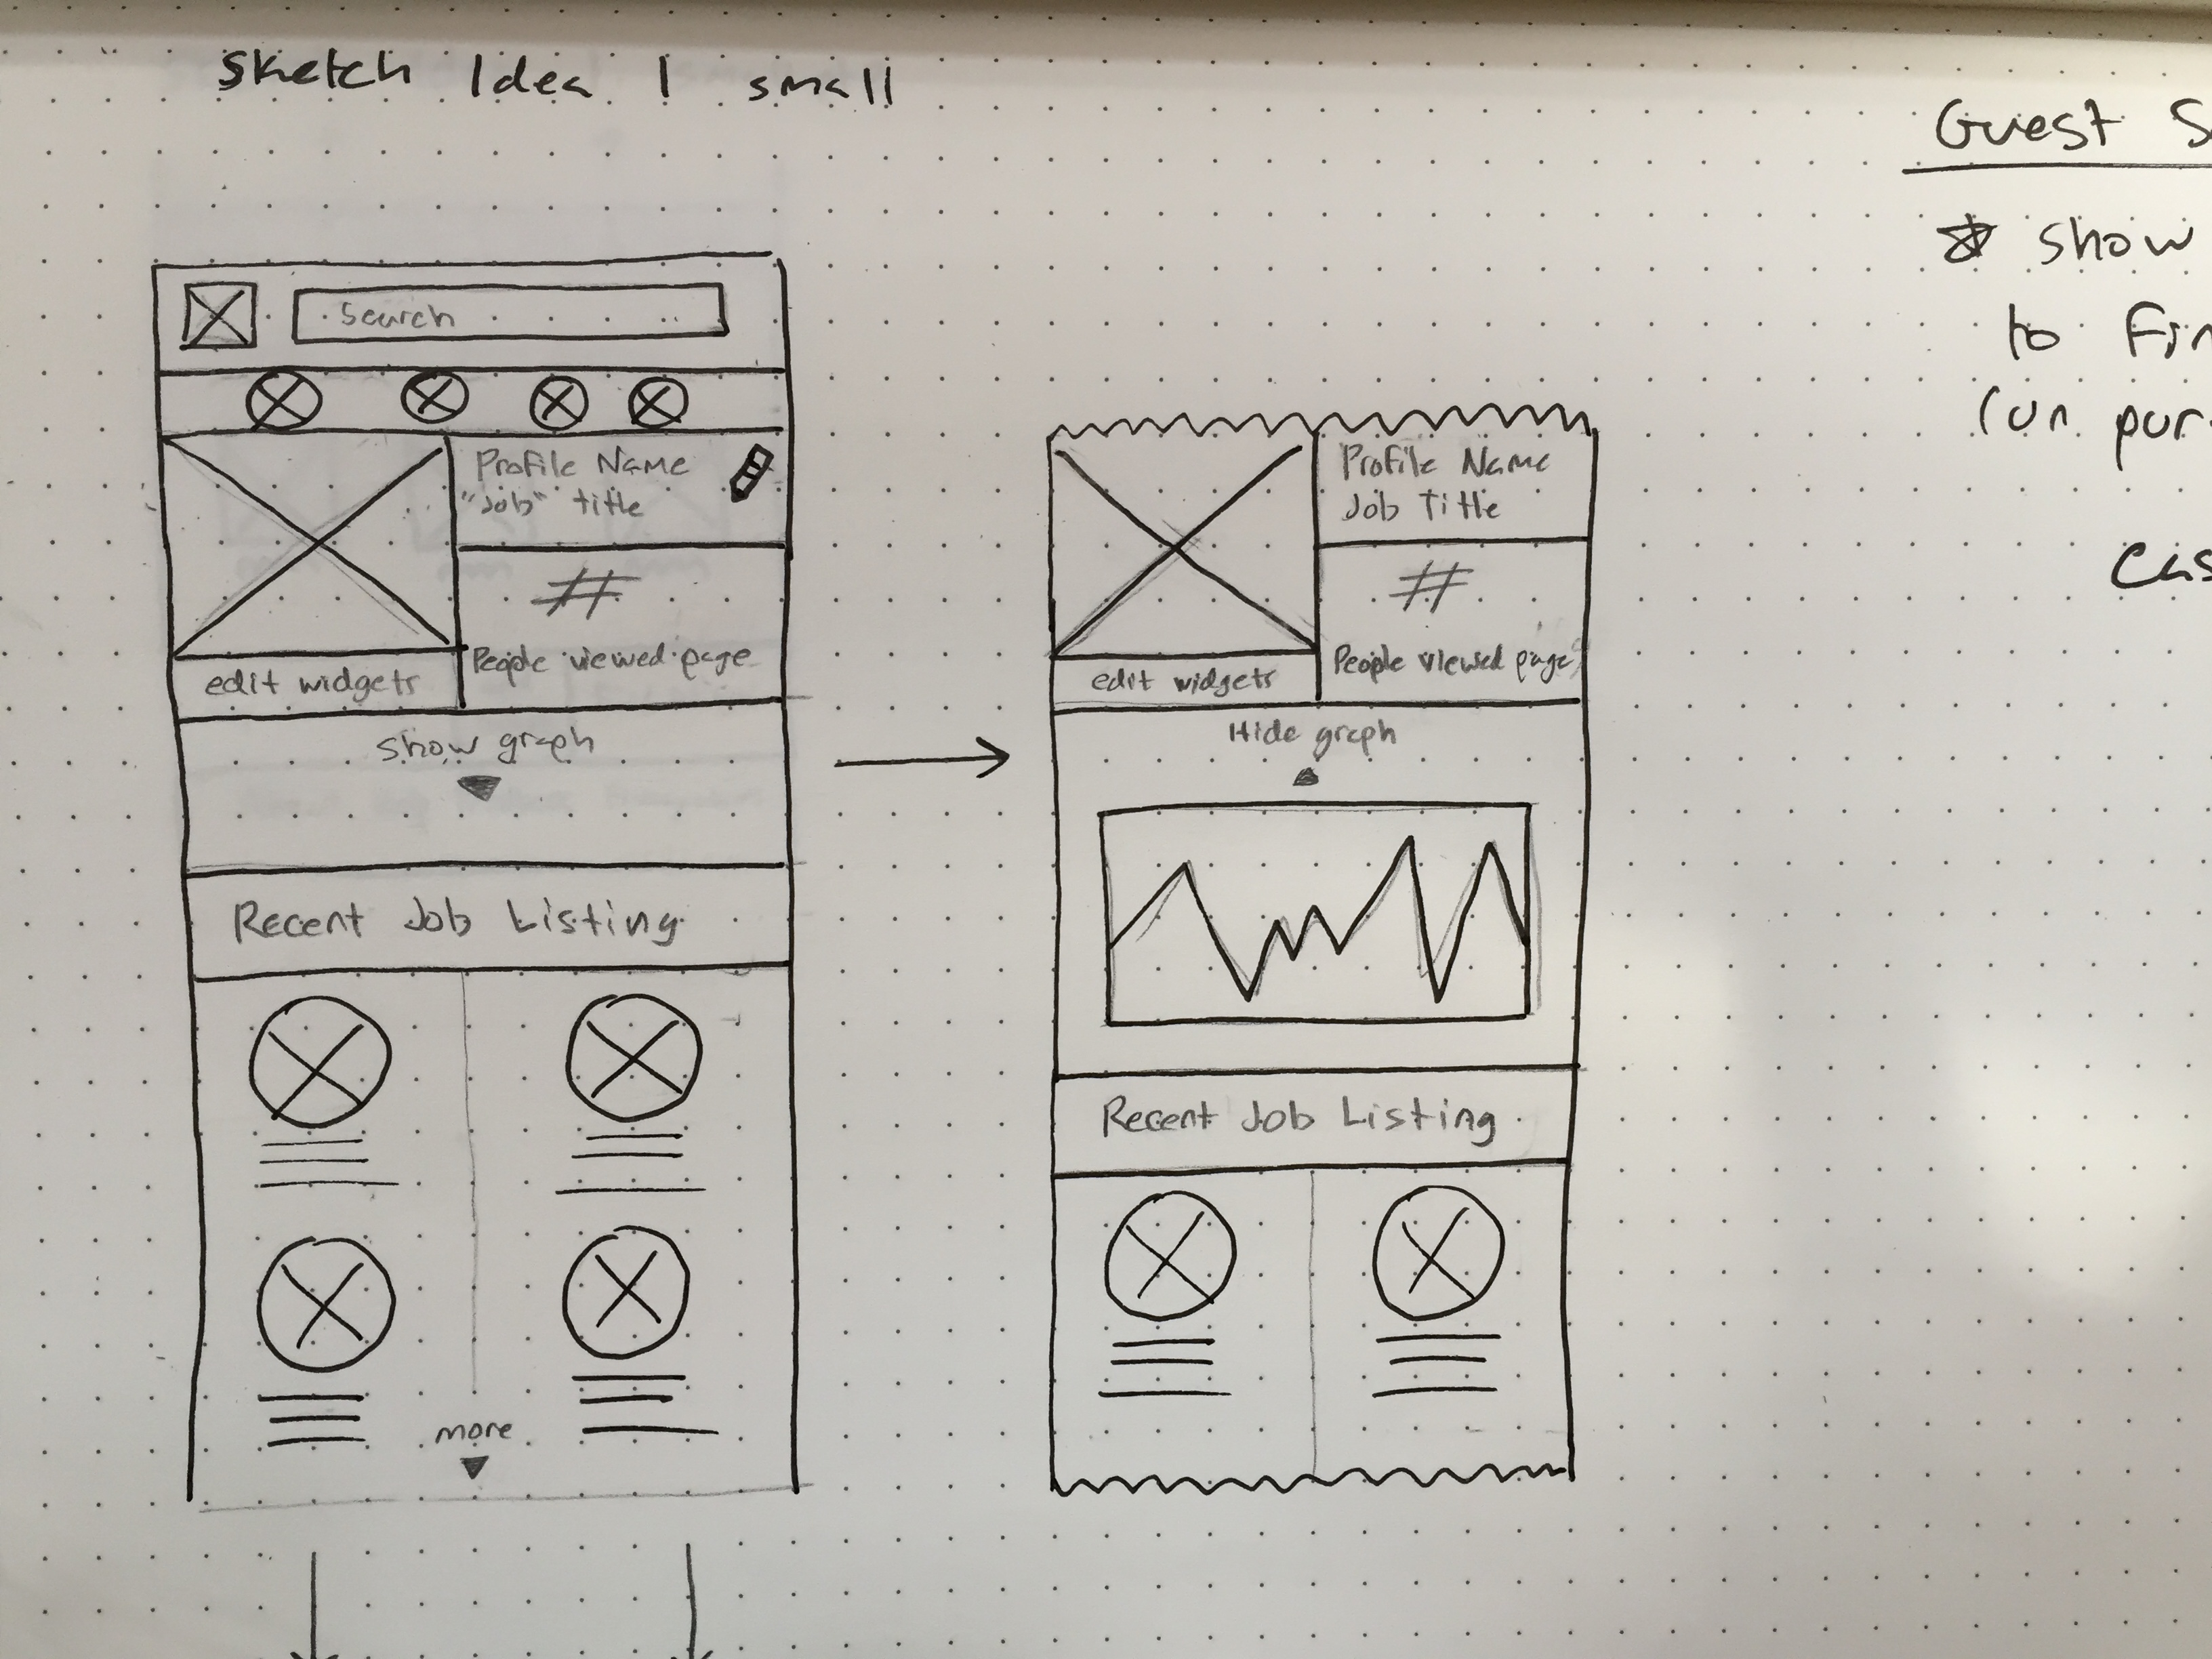 Sketch Idea 1 small
Search
Profile Name
"Job" title
#
People viewed page
edit widgets
Show graph
Recent Job Listing
more
Profile Name
Job Title
#
People viewed page
edit widgets
Hide graph
Recent Job Listing
Guest S
show
to Fin
(un pur
Cas